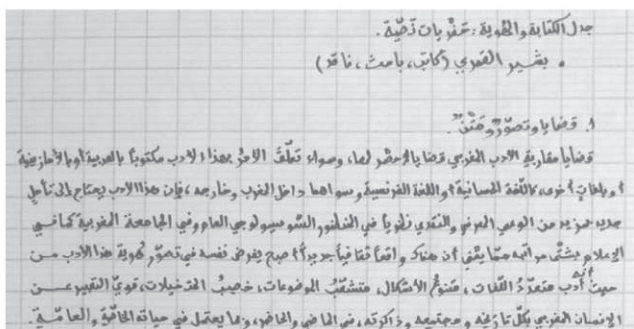 جدل الكتابة والهوية: حفريات نصّيّة.
• بشير القمري (كاتب، باحث، ناقد)
1. قضايا وتصوّر ومَتْن.
قضايا مقاربة الأدب المغربي قضايا لا حصر لها، وسواء تعلّق الأمر بهذا الأدب مكتوباً بالعربية أو بالأمازيغية
أو بلغاتٍ أخرى كاللغة الحسانية أو اللغة الفرنسية وسواهما داخل المغرب وخارجه، فإن هذا الأدب يحتاج إلى تأمل
جديد بمزيد من الوعي المعرفي والنقدي نظرياً في المنظور السّوسيولوجي العام وفي الجامعة المغربية كما في
الإعلام بشتّى مراتبه ممّا يعني أن هناك واقعاً ثقافياً جديداً أصبح يفرض نفسه في تصوّر هوية هذا الأدب من
حيث أنّه أدب متعدّدُ اللّغات، متنوّعُ الأشكال، متشعّبُ الموضوعات، خصيبُ المتخيلات، قويّ التعبير عن
الإنسان المغربي بكلّ تاريخه ومجتمعه وذاكرته، في الماضي والحاضر، وبما يعتمل في حياته الخاصّة والعامّة.